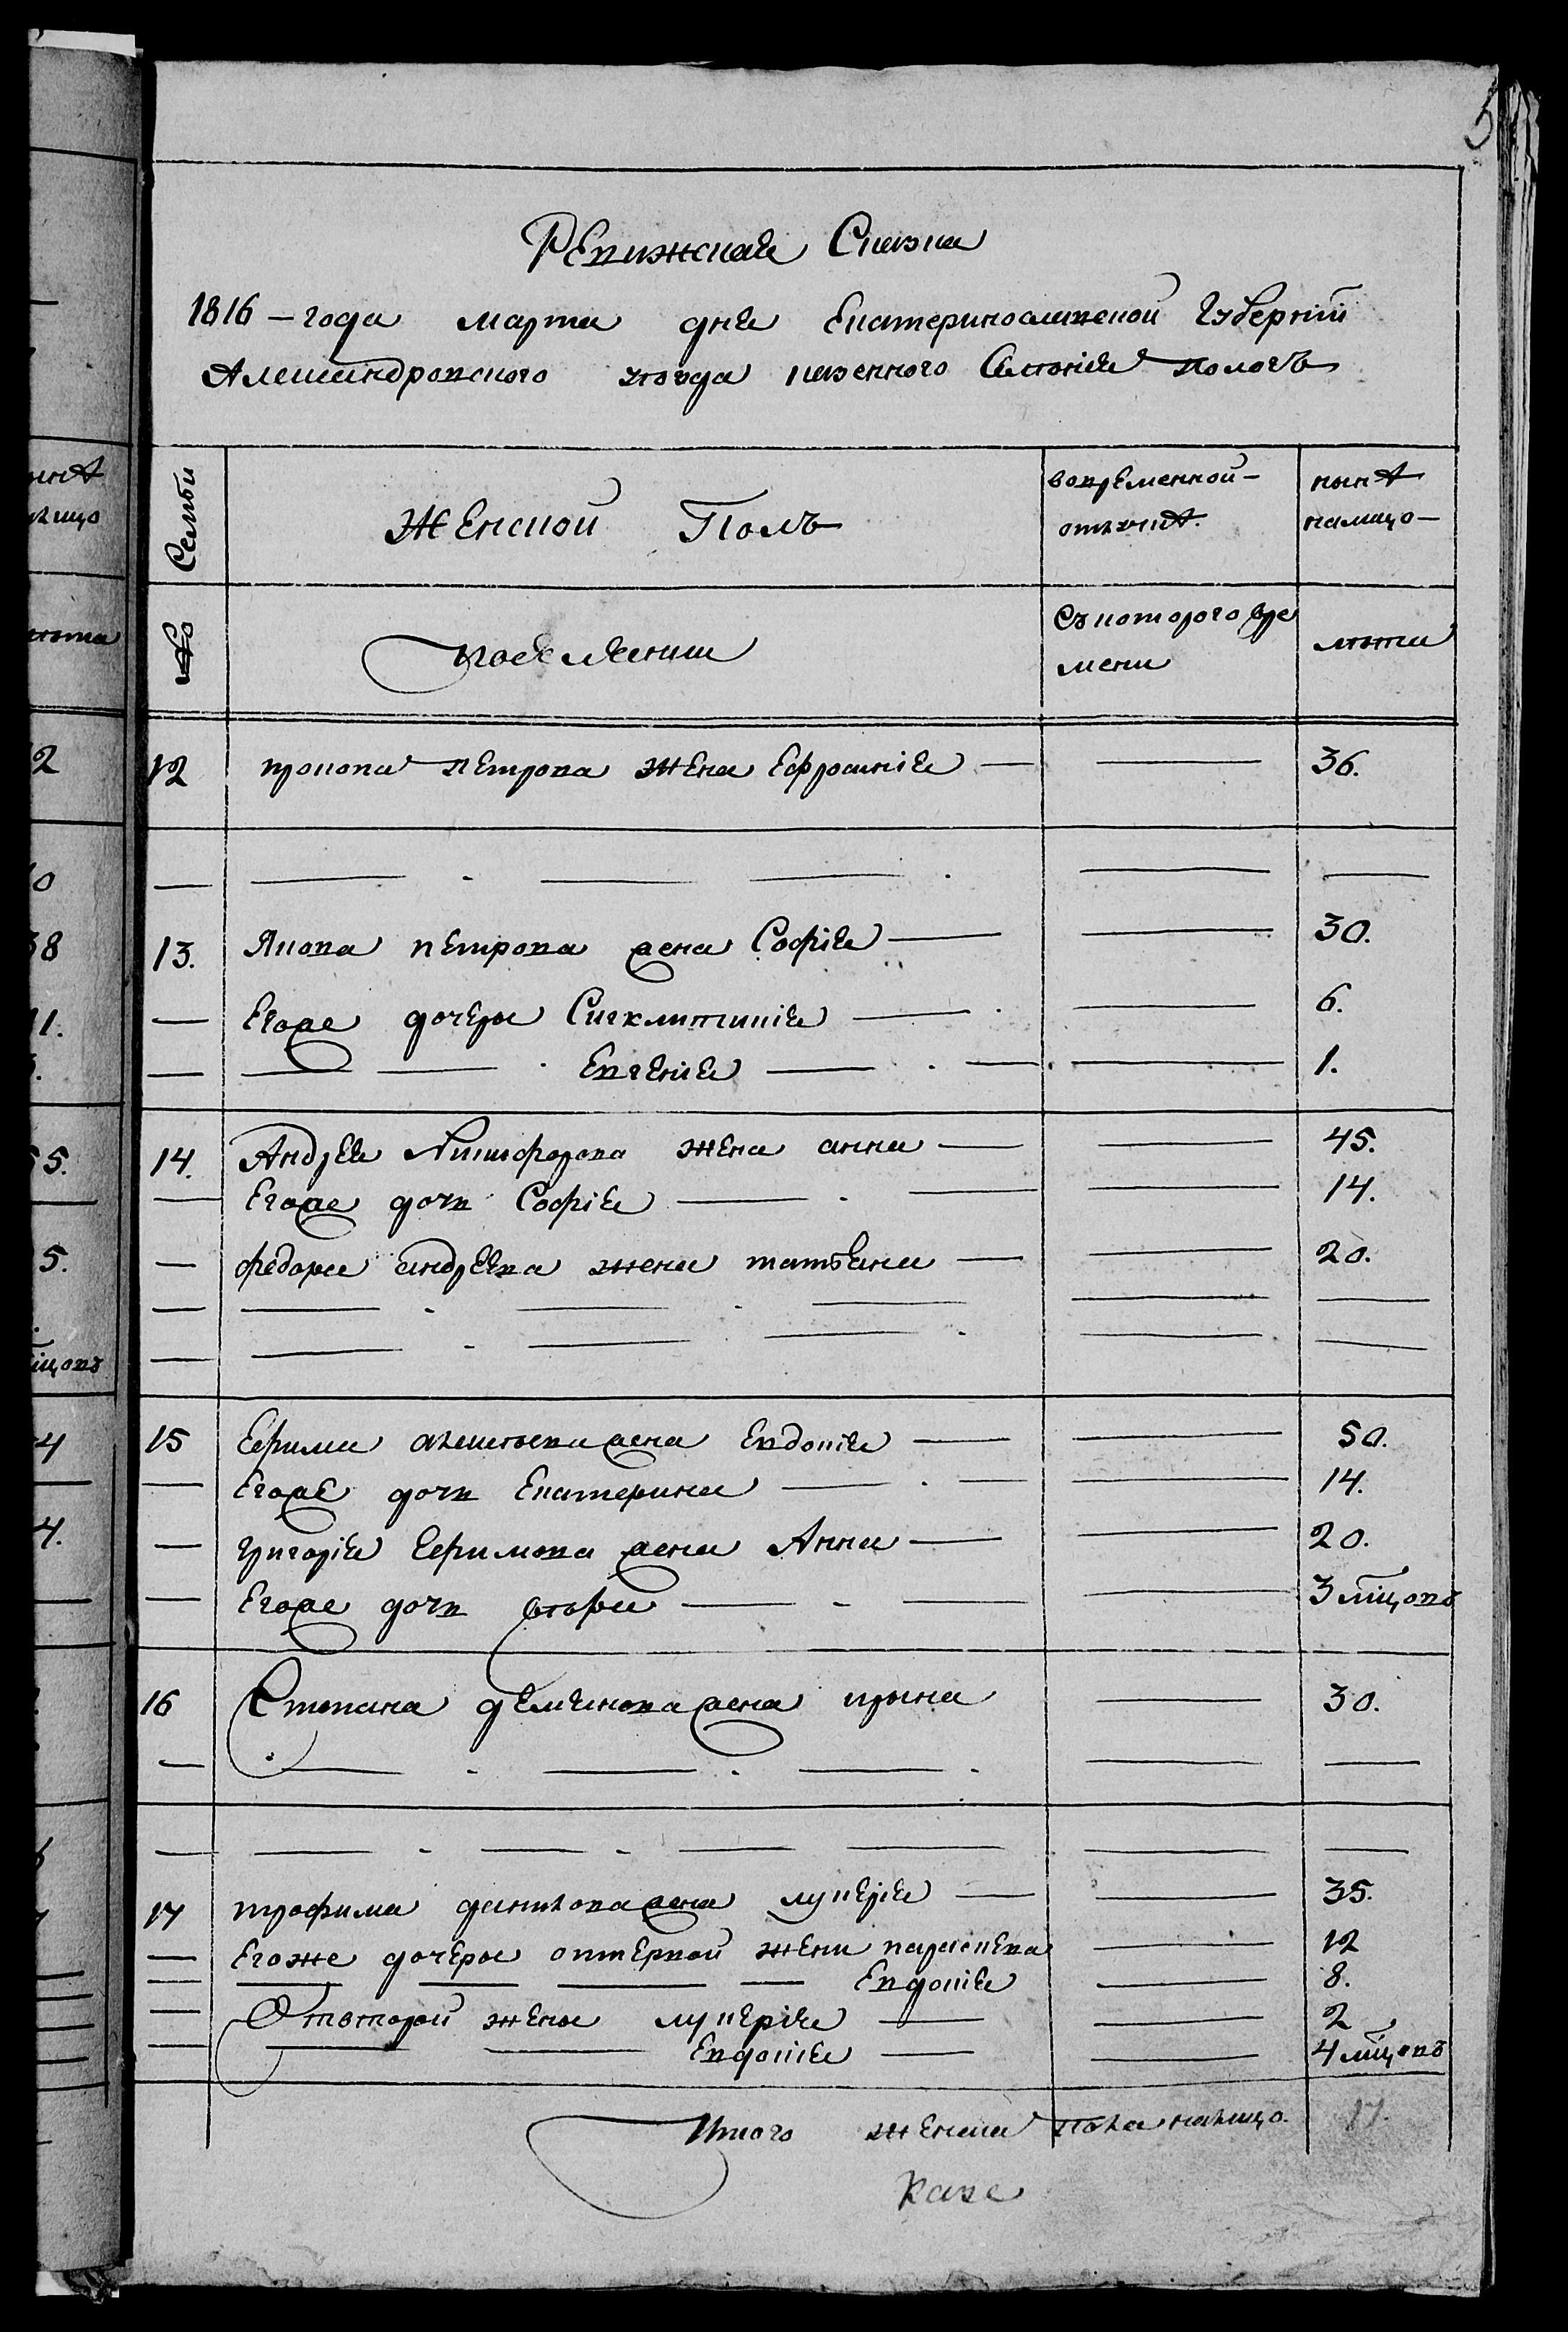 5
Ревижская Сказка
1816 – года марта дня Екатеринославской Губерніи
Александровского уѣзда казенного Селенія пологъ
Семьи
Женской Полъ
вовременной –
отлучкѣ.
нынѣ
налицо –
№
поселянии
Съ которого вре
мени
лѣта
12 прокопа петрова жена Ефросинія — — 36.
13. Якова петрова жена Софія — — 30.
— Егоже дочеры Сигклитикія — — 6.
— — Евгенія — — 1.
14. Андрея Никифорова жена анна — — 45.
— Егоже дочь Софія — — 14.
— федора андреева жена татьяна — — 20.
15 Ефима алексѣева жена Евдокія — — 50.
— Егоже дочь Екатерина — — 14.
— григорія Ефимова жена Анна — — 20.
— Егоже дочь — — 3 мѣцовъ
16 Стопана демянова жена ирина — 30.
17 трофима данилова жена лукерія — — 35.
— Егоже дочеры отпервой жени параскева — 12
— — Евдокія — 8.
— Отвторой жены лукерія — — 2
— — Евдокія — — 4 мѣцовъ
Итого женска пола налицо. 17.